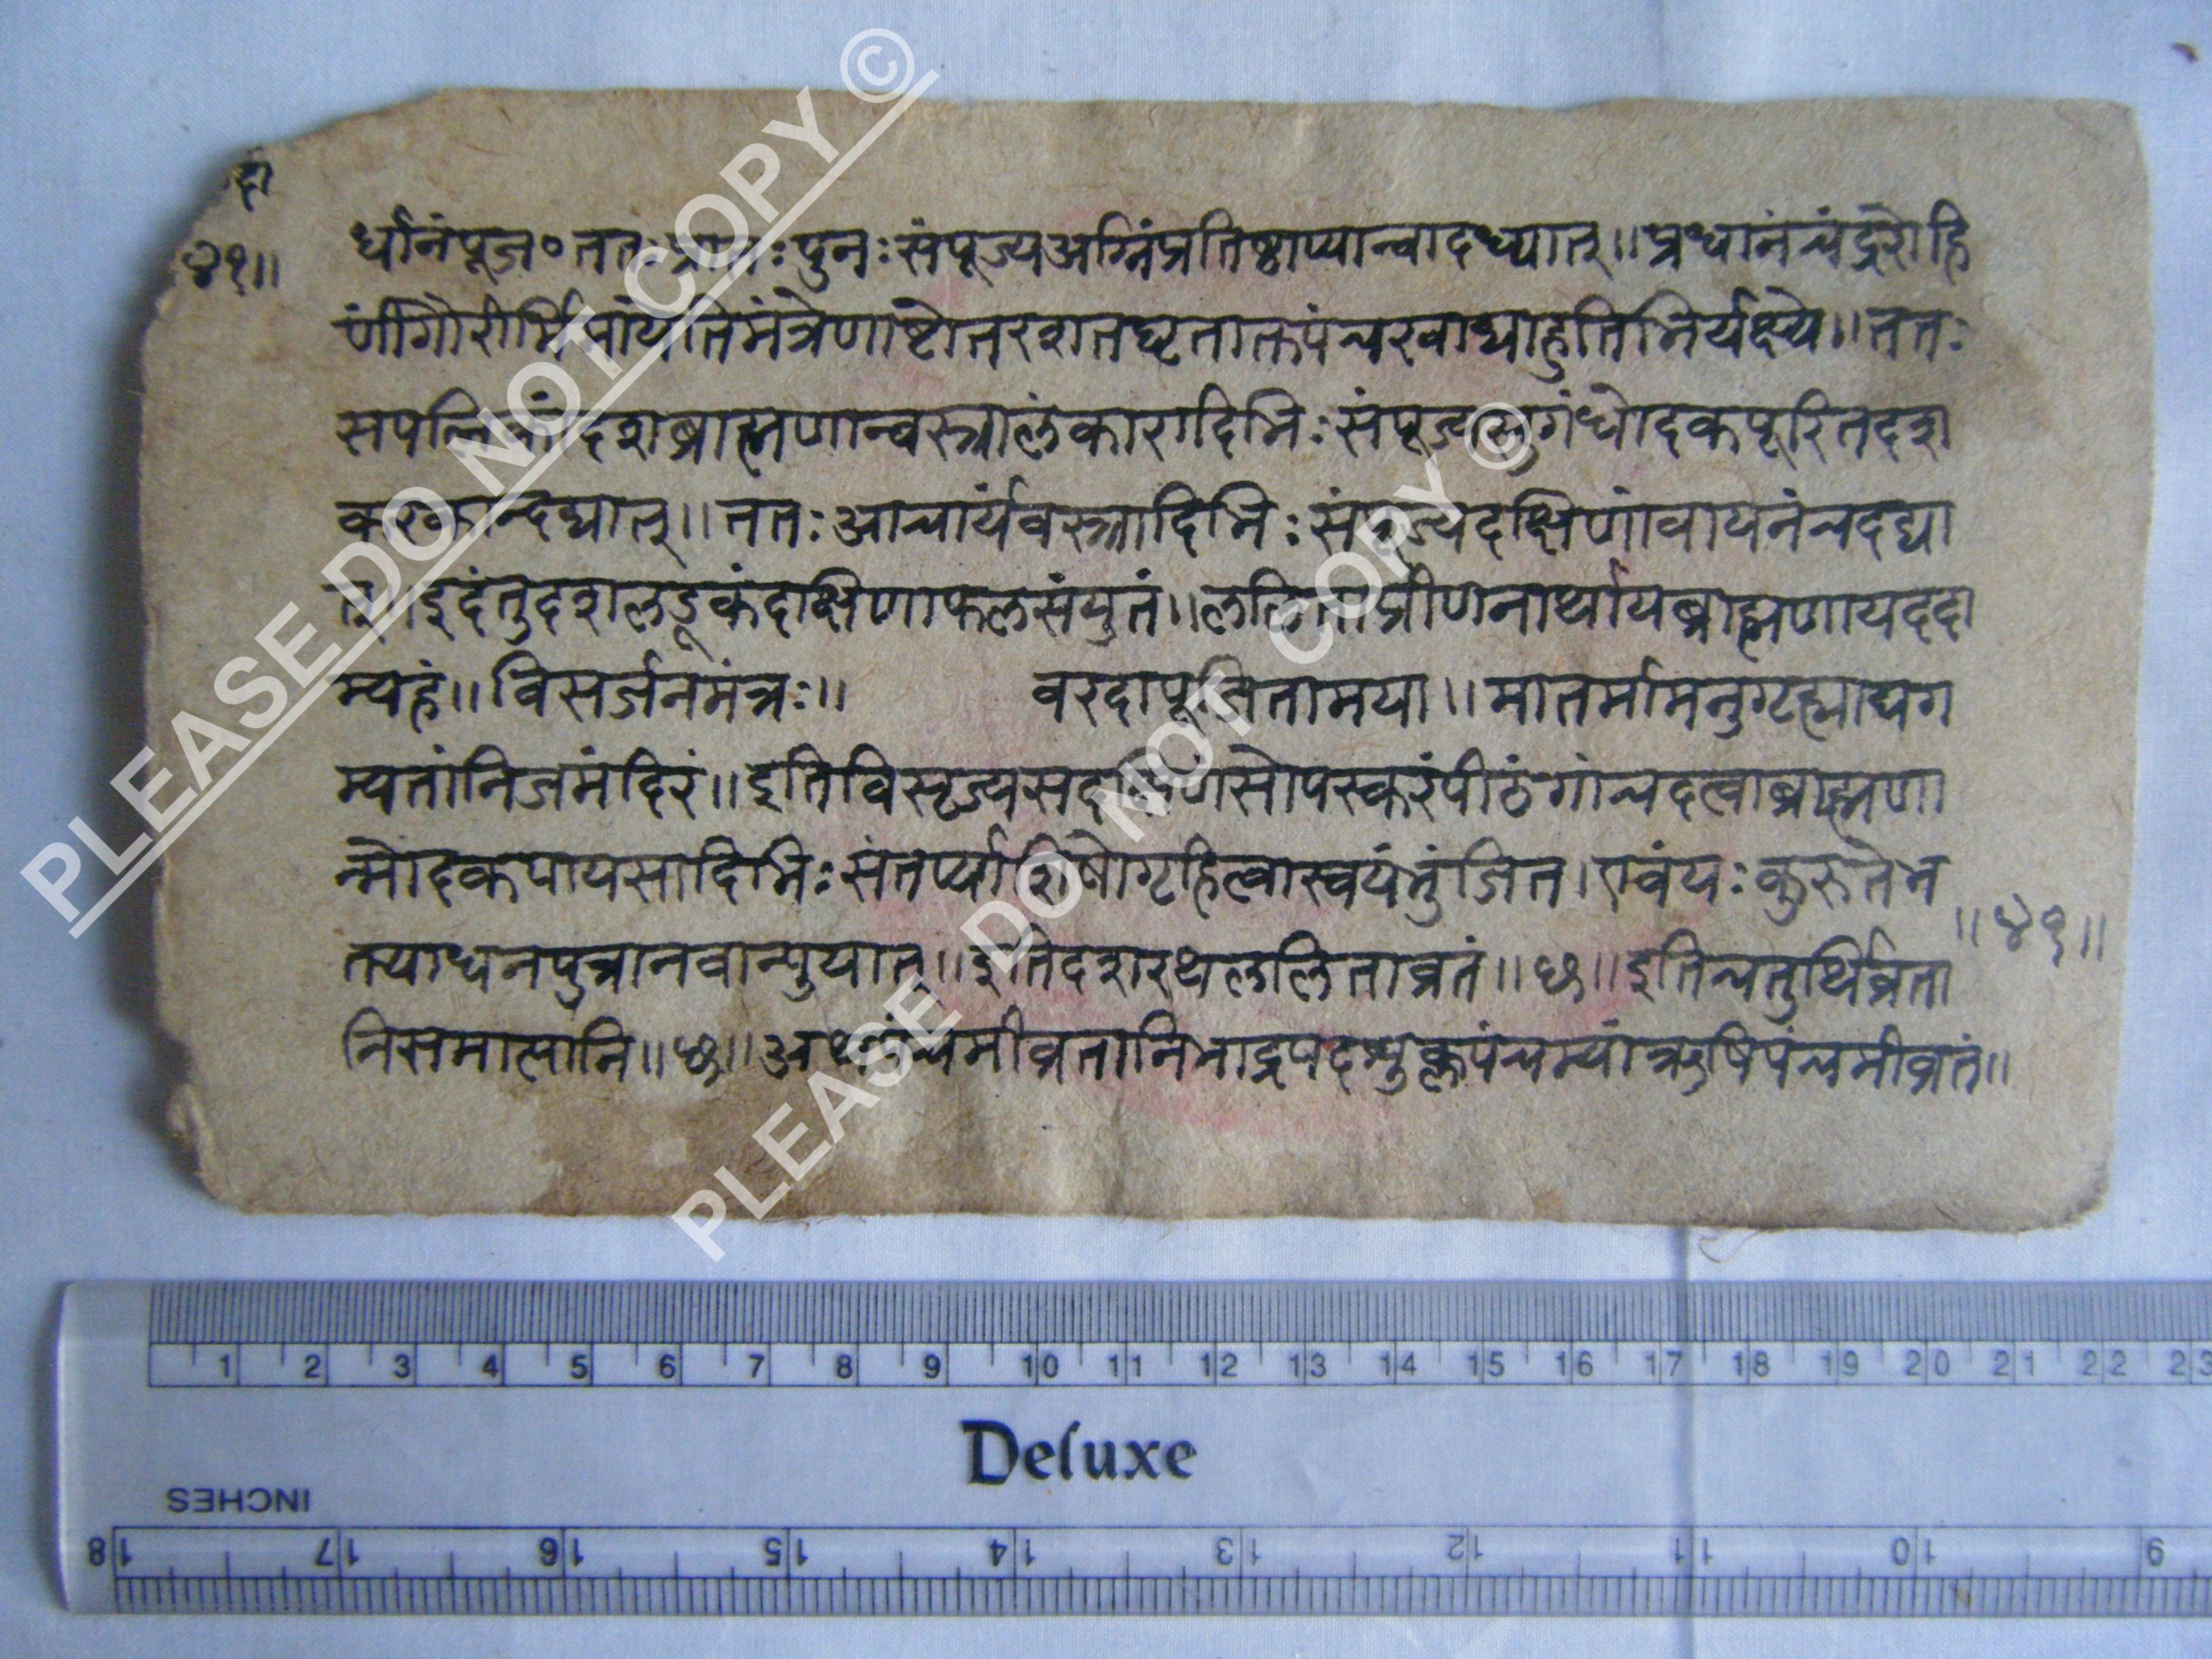 दा
४१॥
र्धानंपूज॰ततःप्रातःपुनःसंपूज्यअग्निंप्रतिष्ठाप्यान्वादध्यात्॥प्रधानंचंद्ररोहि
णींगौरीर्मिमांयेतिमंत्रेणाष्टोत्तरशतघृताक्तपंचखाद्याहुतिभिर्यक्ष्ये॥ततः
सपत्निकांदशब्राह्मणान्वस्त्रालंकारादिभिःसंपूज्यसुगंधोदकपूरितदश
करकान्दद्यात्॥ततःआचार्यंवस्त्रादिभिःसंपूज्यदक्षिणांवायनंचदद्या
त्॥इदंतुदशलडूकंदक्षिणाफलसंयुतं॥ललिताप्रीणनार्थायब्राह्मणायददा
म्यहं॥विसर्जनमंत्रः॥ वरदापूजितामया॥मातर्मामनुगृह्याद्यग
म्यतांनिजमंदिरं॥इतिविसृज्यसदक्षिणसोपस्करंपीठंगांचदत्वाब्राह्मणा
न्मोदकपायसादिभिःसंतर्प्याशिषोगृहित्वास्वयंभुंजित।एवंयःकुरुतेभ
क्त्याधनपुत्रानवान्पुयात्॥इतिदशरथललिताव्रतं॥छ॥इतिचतुर्थिव्रता
॥४१॥
निसमाप्तानि॥छ॥अथपंचमीव्रतानिभाद्रपदशुक्लपंचम्यांऋषिपंचमीव्रतं॥
PLEASE DO NOT COPY ©
PLEASE DO NOT COPY ©
1 2 3 4 5 6 7 8 9 10 11 12 13 14 15 16 17 18 19 20 21 22 23
Deluxe
INCHES
18 17 16 15 14 13 12 11 10 9